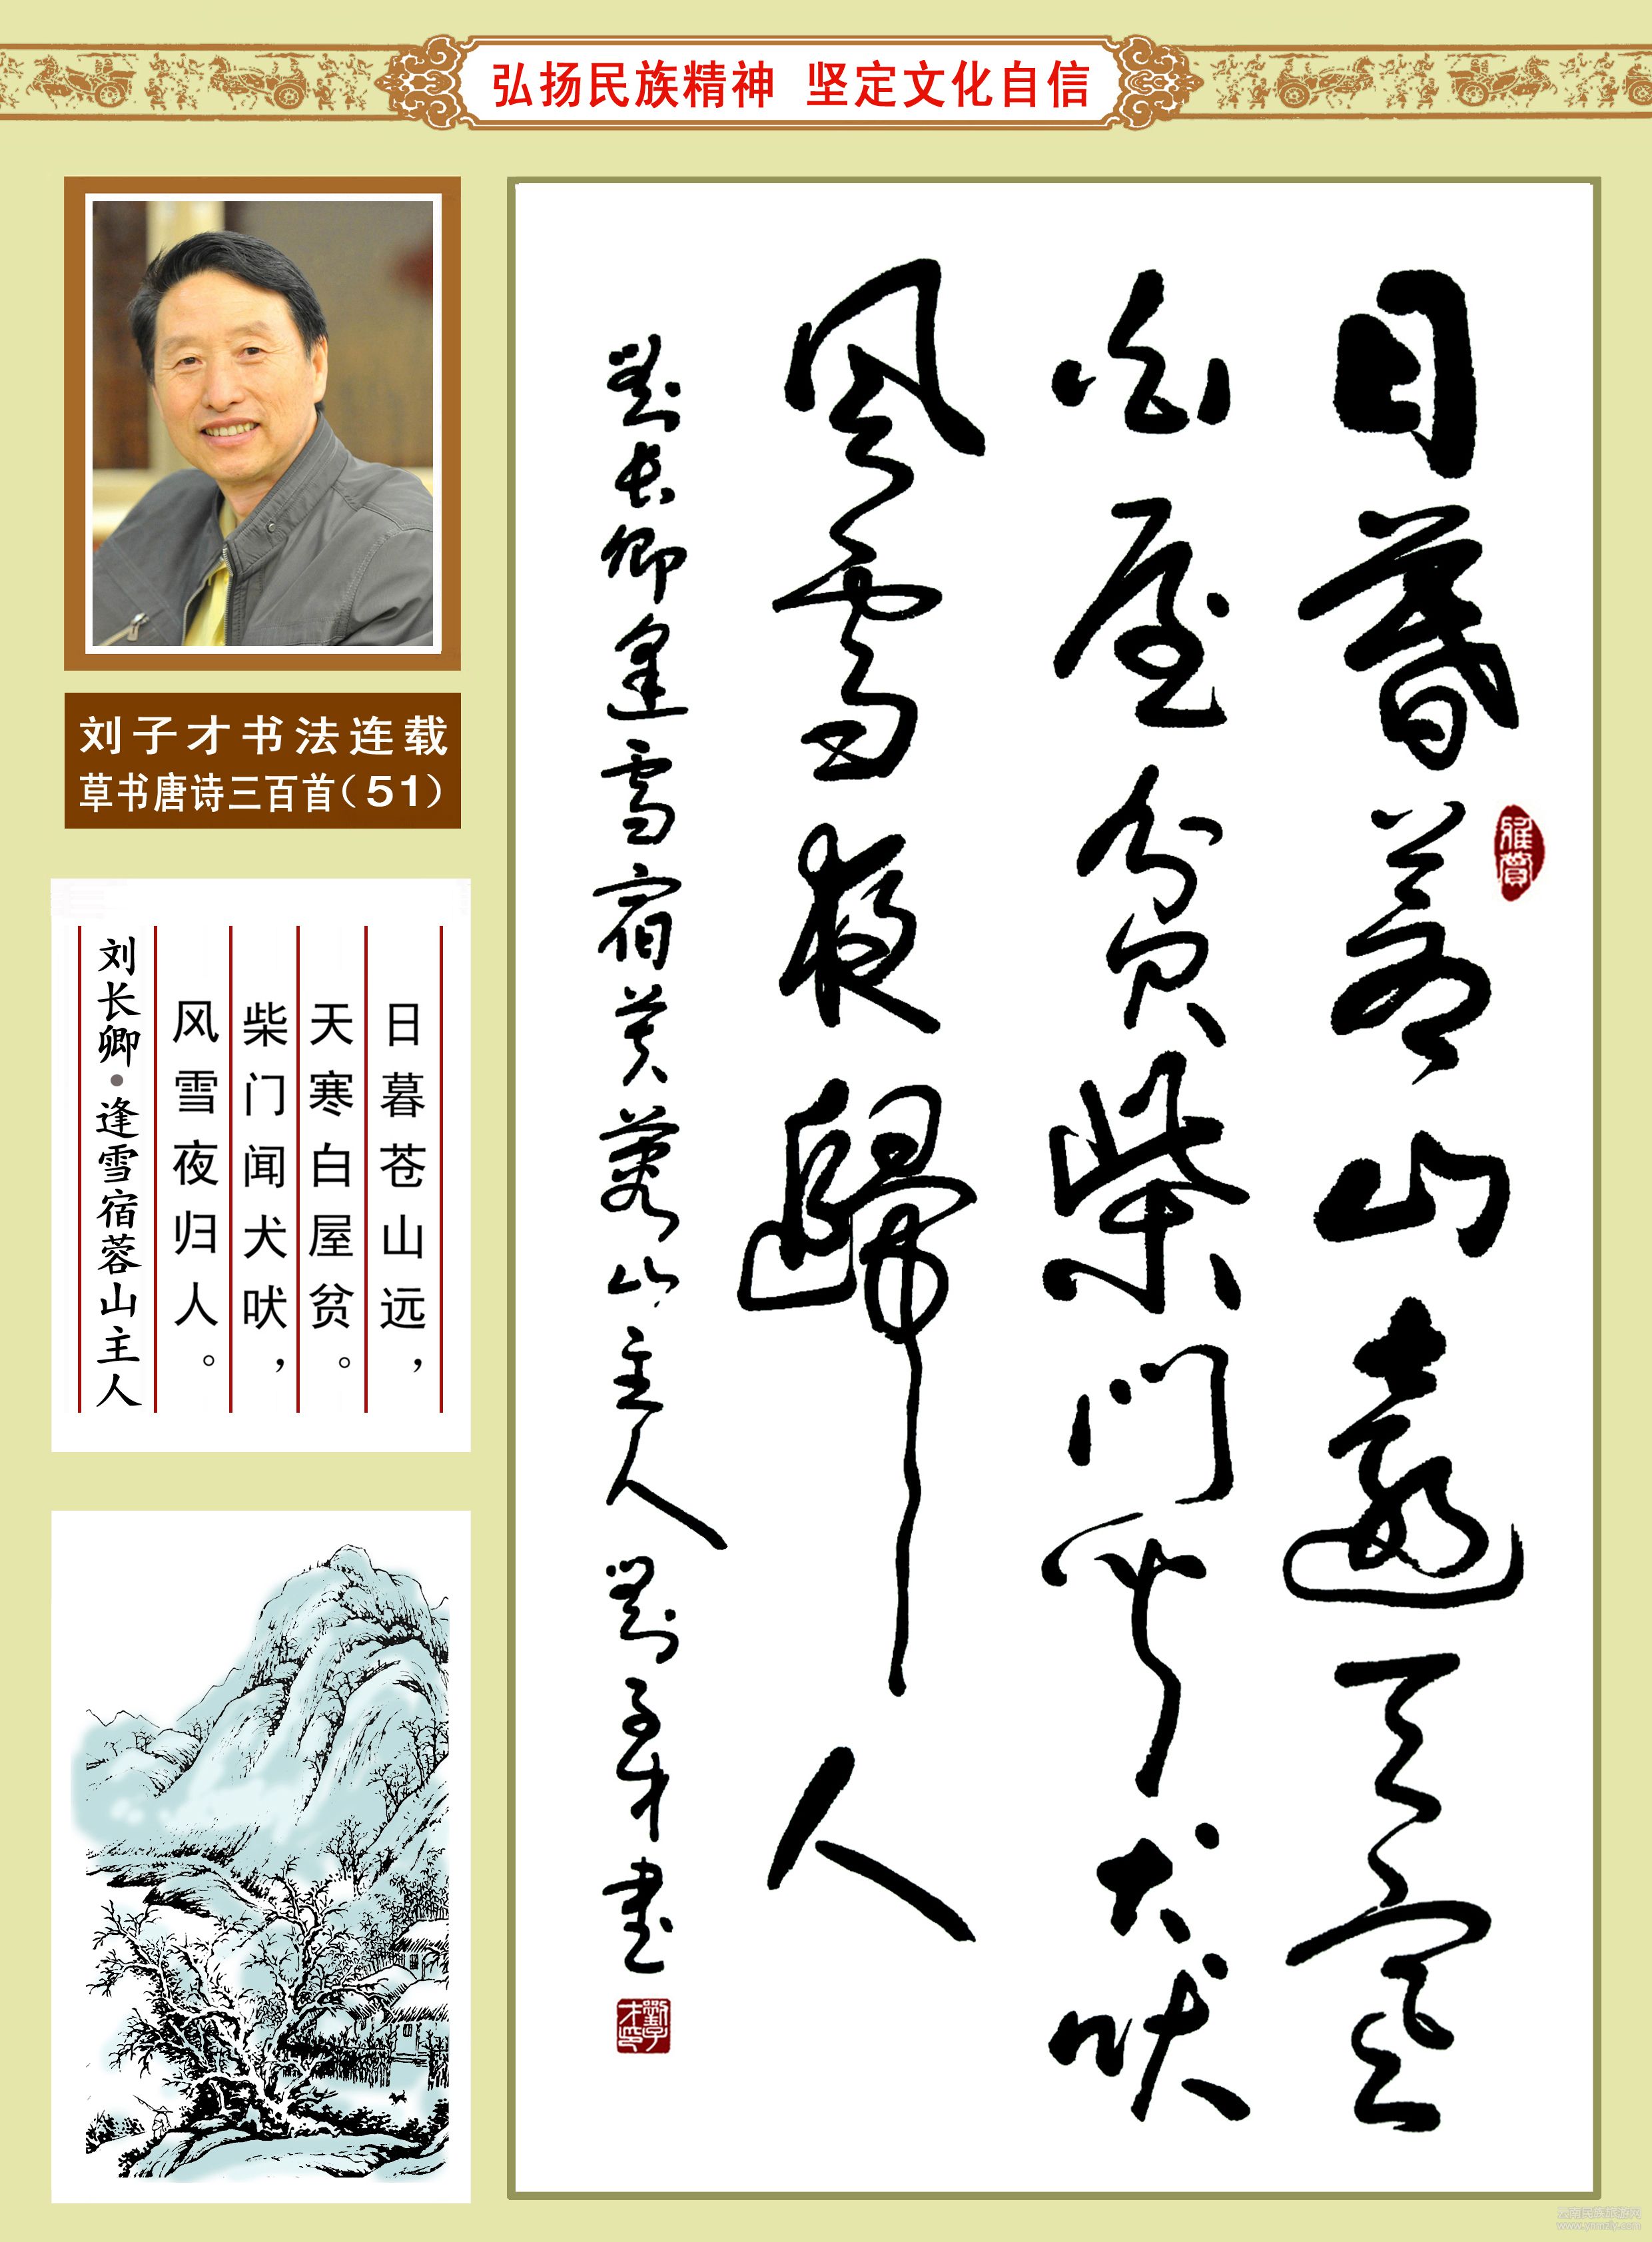 弘扬民族精神 坚定文化自信
刘子才书法连载
草书唐诗三百首（51）
日暮苍山远，
天寒白屋贫。
柴门闻犬吠，
风雪夜归人。
刘长卿·逢雪宿蓉山主人
日暮蒼山遠天寒
白屋貧柴門聞犬吠
風雪夜歸人
劉長卿逢雪宿芙蓉山主人劉子才書
雅賞
劉子才印